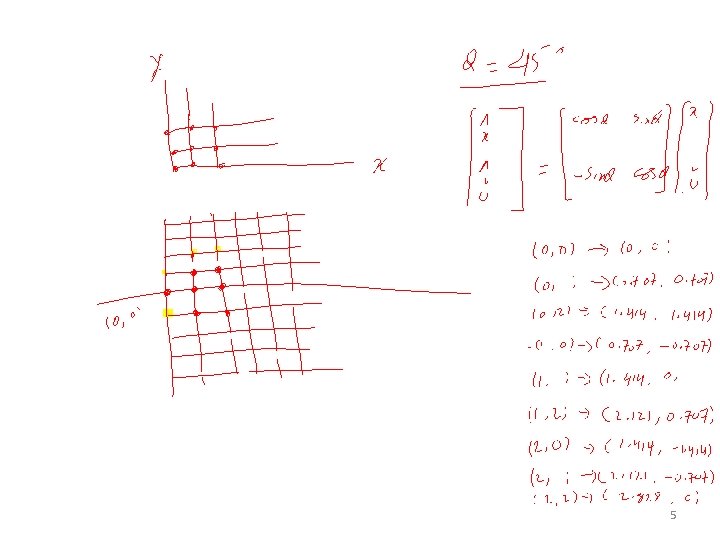 y
x
θ = 45°
[x̂ ŷ] = [cosθ sinθ -sinθ cosθ] [x y]
(0,0)
(0,0) → (0, 0)
(0, → (0.707, 0.707)
(0,2) → (1.414, 1.414)
(1,0) → (0.707, -0.707)
(1, → (1.414, 0,
(1,2) → (2.121, 0.707)
(2,0) → (1.414, -1.414)
(2, → (2.121, -0.707)
(2,2) → (2.828, 0)
5